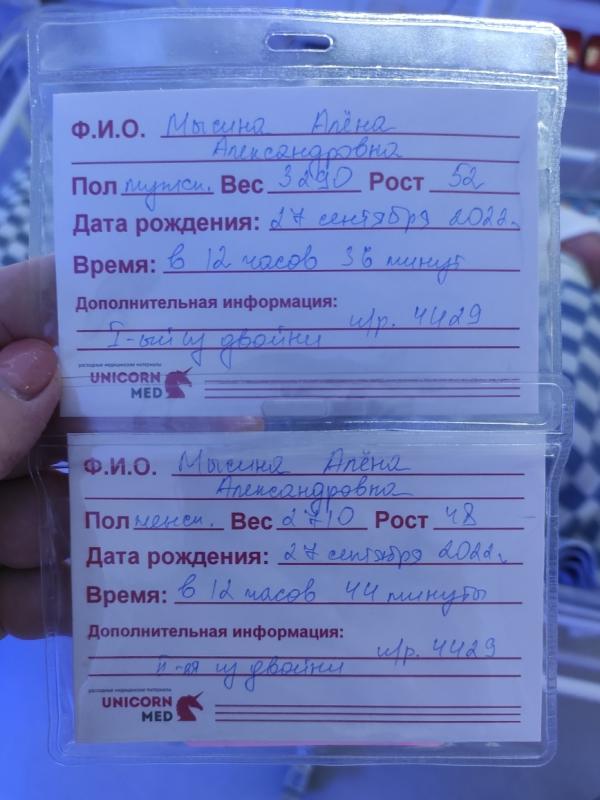 Ф.И.О. Мысина Алёна
Александровна
Пол мужск. Вес 3290 Рост 52
Дата рождения: 27 сентября 2022г.
Время: в 12 часов 36 минут
Дополнительная информация:
и/р. 4429
I-ый из двойни
расходные медицинские материалы
UNICORN
MED
Ф.И.О. Мысина Алёна
Александровна
Пол женск. Вес 2710 Рост 48
Дата рождения: 27 сентября 2022г.
Время: в 12 часов 44 минуты
Дополнительная информация:
и/р. 4429
II-ая из двойни
расходные медицинские материалы
UNICORN
MED